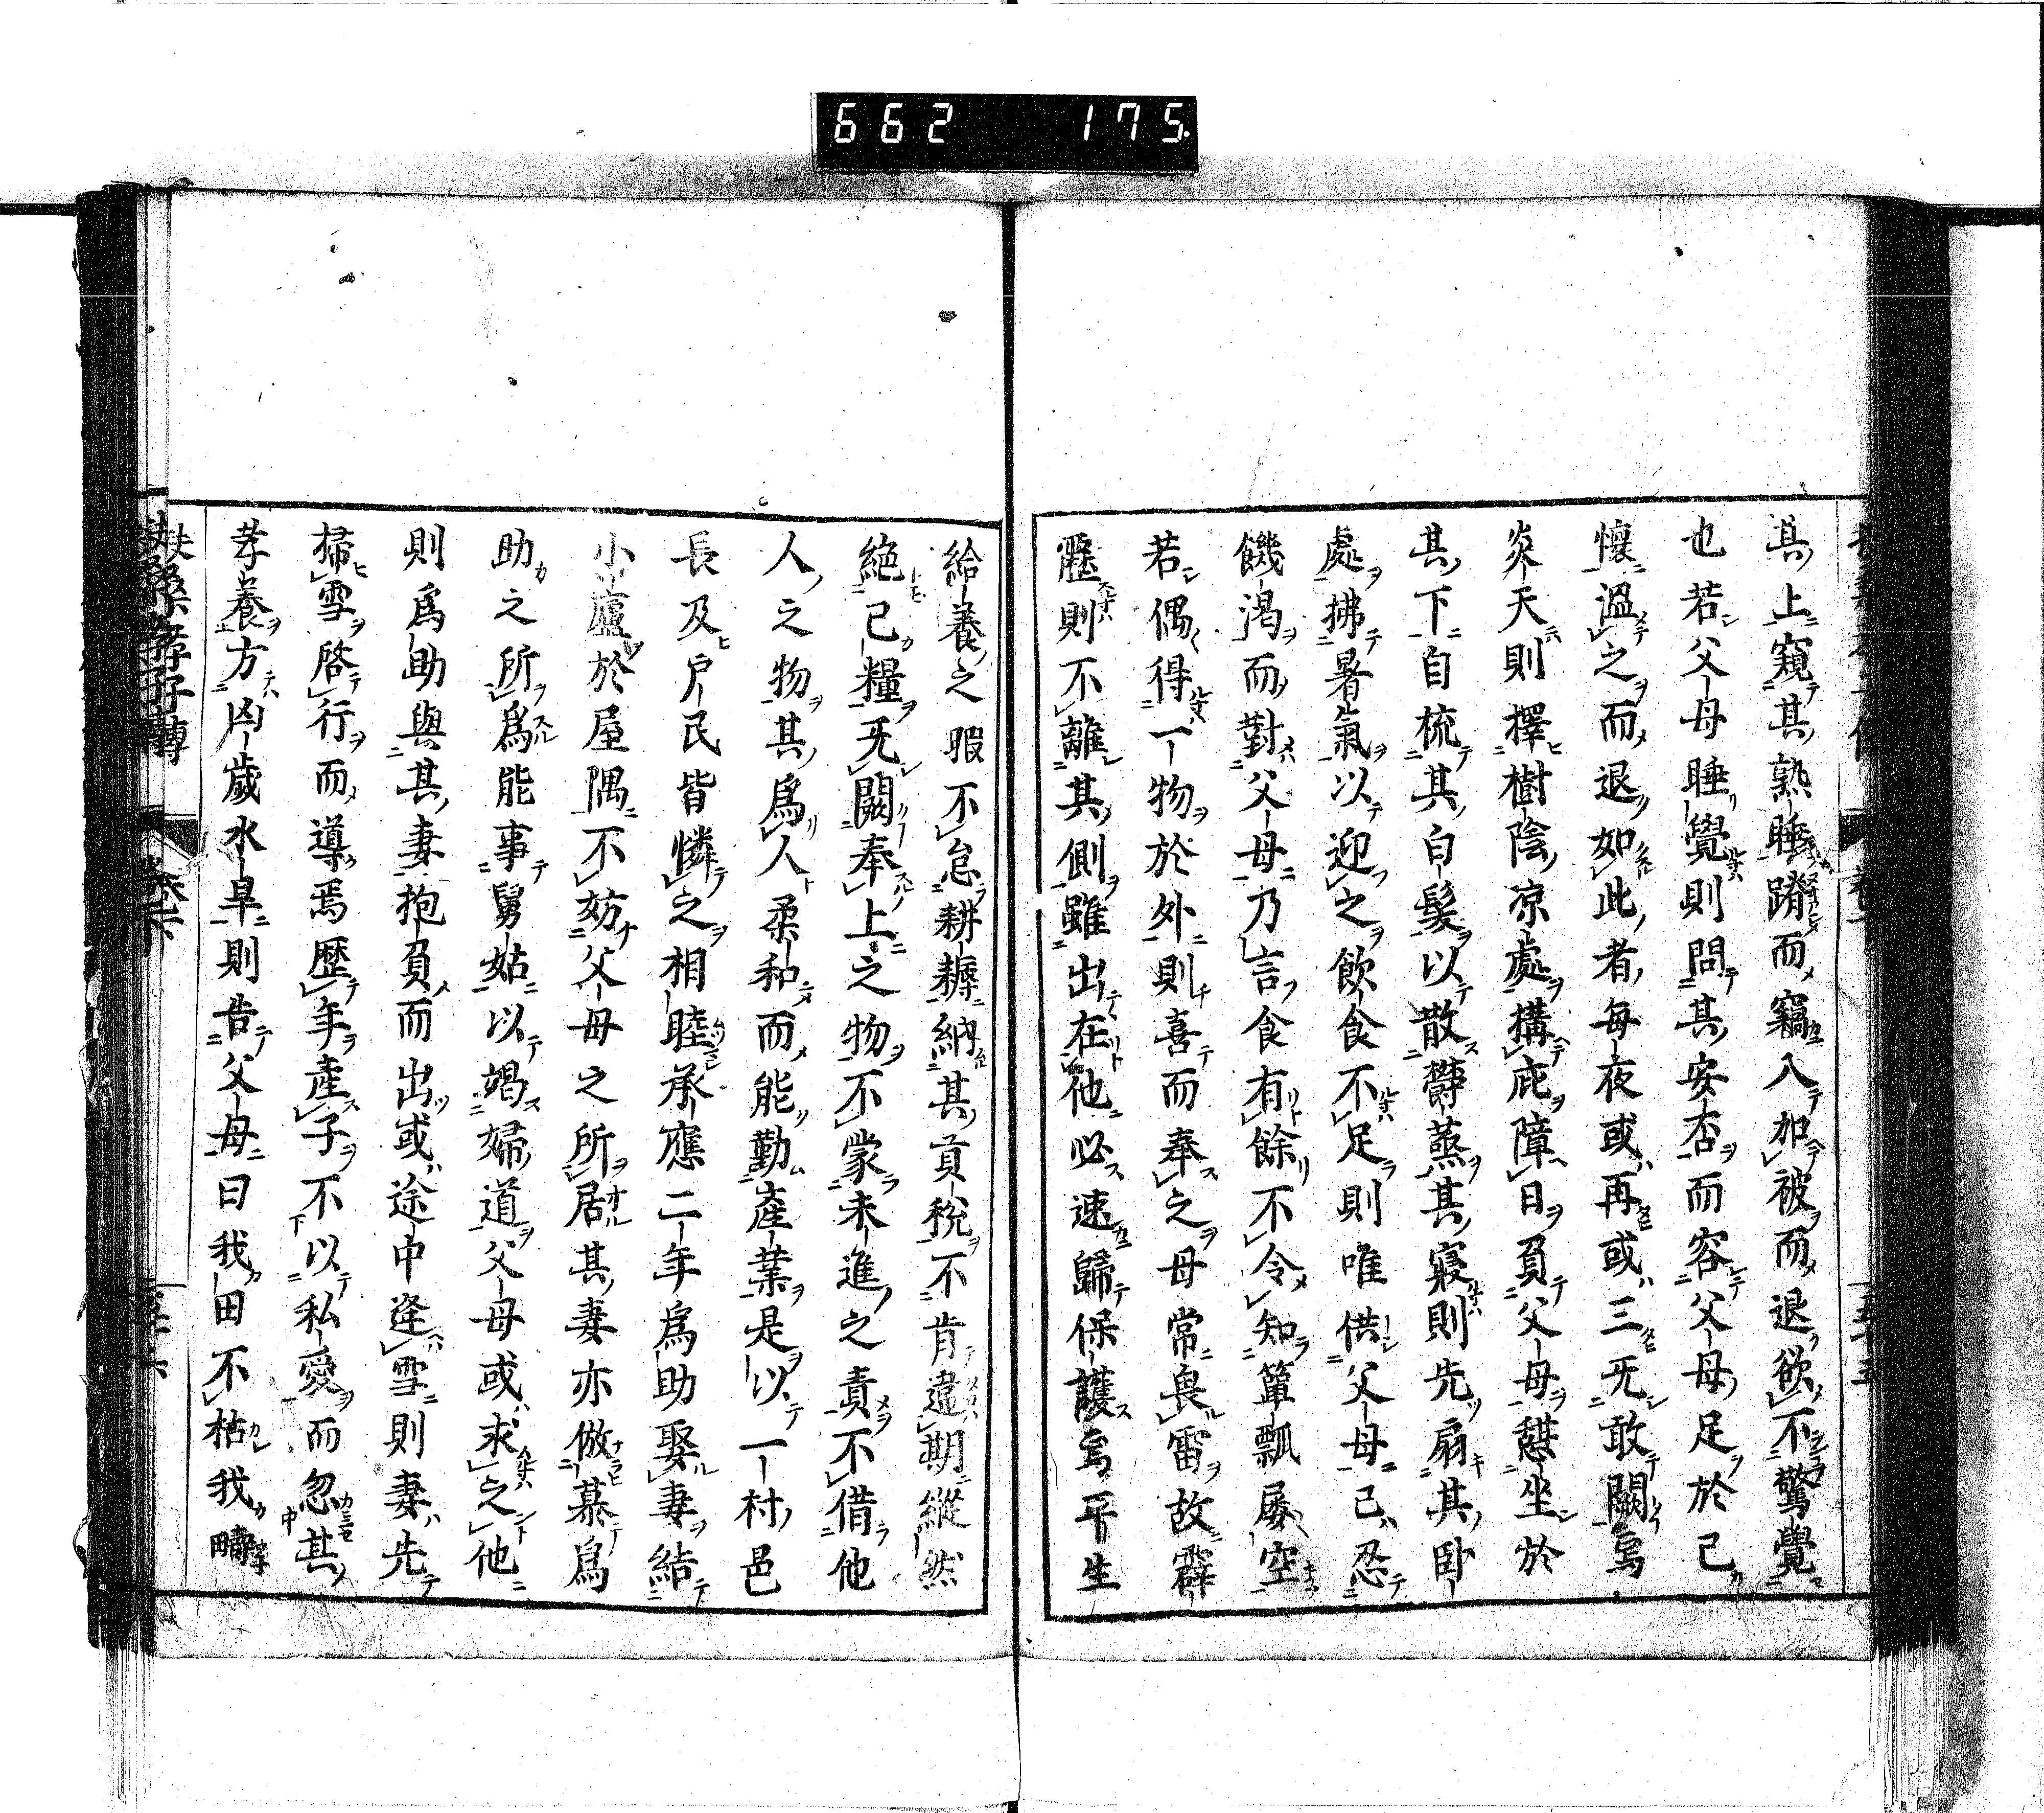 662 175
其上窺其熟睡蹐而竊入加被而退欲不驚覺
也若父母睡覺則問其安否而容父母足於己
懷溫之而退如此者每夜或再或三无敢闕焉
炎天則擇樹陰凉處搆庇障日負父母憇坐於
其下自梳其白髮以散欝蒸其寢則先扇其臥
處拂暑氣以迎之飲食不足則唯供父母己忍
饑渴而對父母乃言食有餘不令知簞瓢屡空
若偶得一物於外則喜而奉之母常畏雷故霹
靂則不離其側雖出在他必速歸保護焉平生
給養之暇不怠耕耨納其貢稅不肯違期縱然
絕己糧无闕奉上之物不蒙未進之責不借他
人之物其爲人柔和而能勤產業是以一村邑
長及戶民皆憐之相睦承應二年爲助娶妻結
小廬於屋隅不妨父母之所居其妻亦倣慕爲
助之所爲能事舅姑以竭婦道父母或求之他
則爲助與其妻抱負而出或途中逢雪則妻先
掃雪啓行而導焉歷年產子不以私愛而忽其
孝養方凶歲水旱則告父母曰我田不枯我疇
扶桑孝子傳